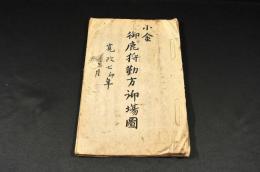 小金
御鹿狩勤方御場圖
寛政七卯年
三月